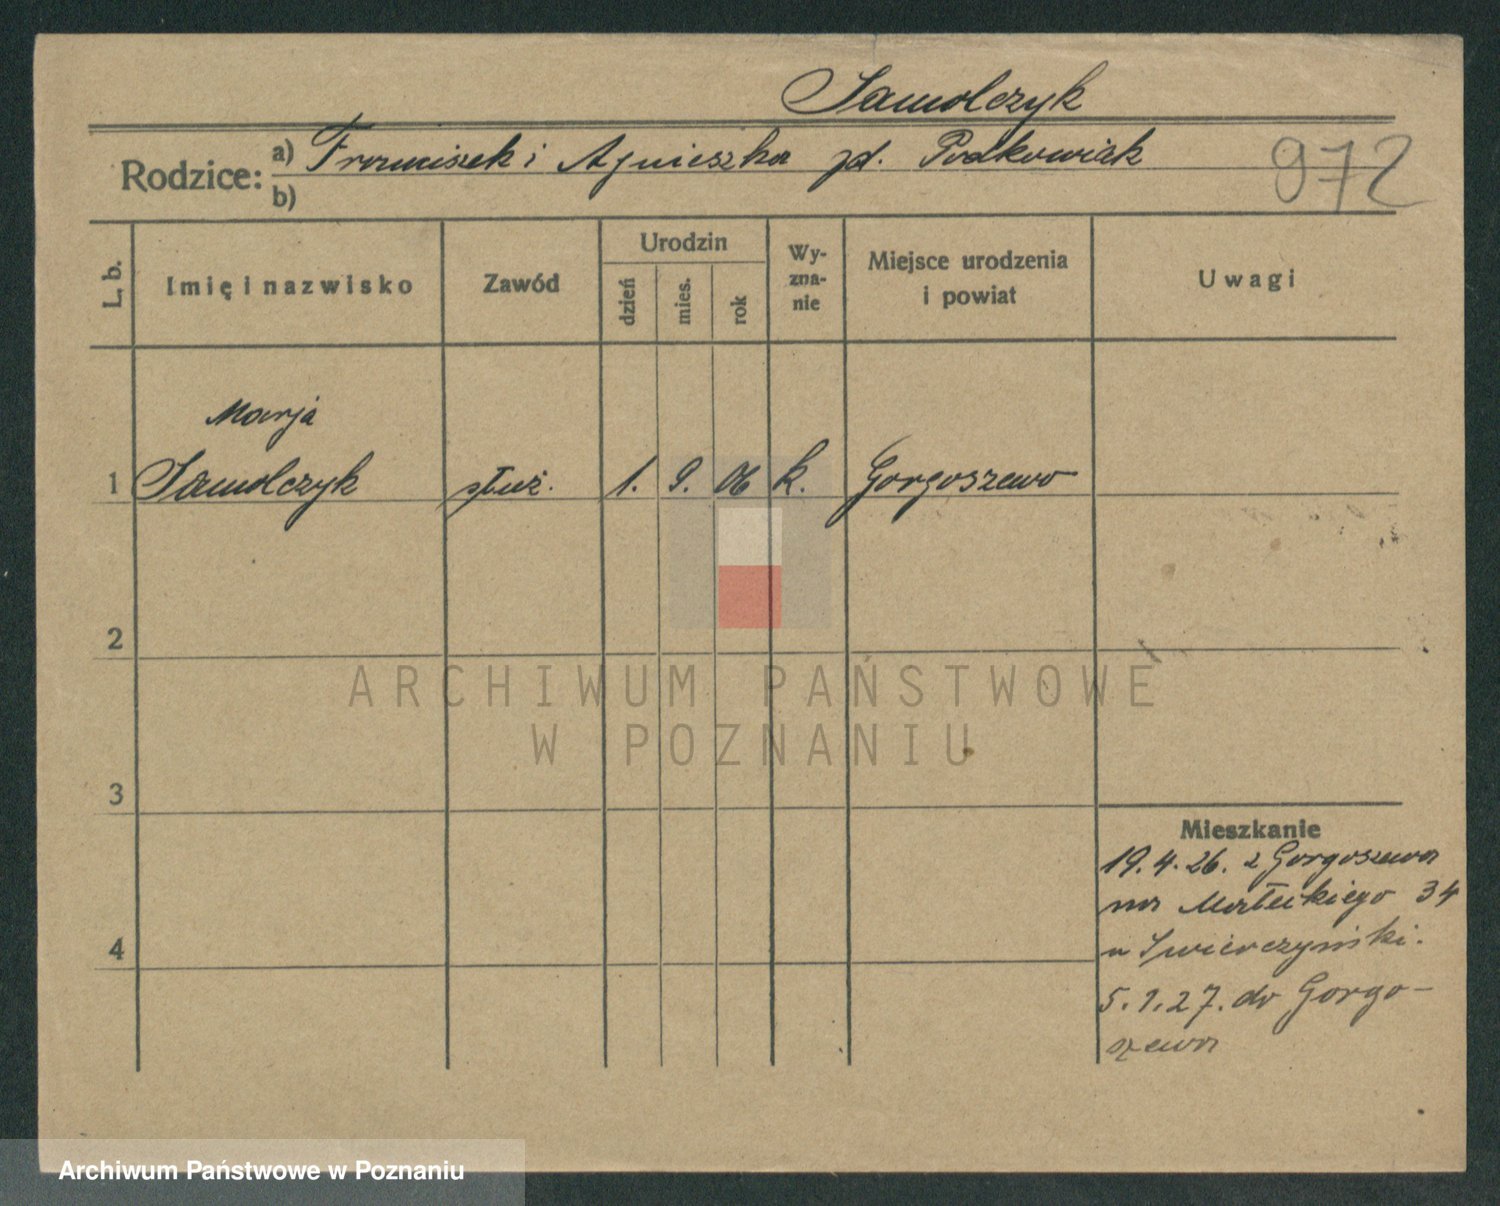 Samolczyk
Rodzice: a) Franciszek i Agnieszka zd. Podkowiak
b)
972
L. b.
Imię i nazwisko
Zawód
Urodzin
dzień
mies.
rok
Wy-
zna-
nie
Miejsce urodzenia
i powiat
Uwagi
Marja
1 Samolczyk służ. 1. 9. 06 k. Gorgoszewo
2
ARCHIWUM PAŃSTWOWE
W POZNANIU
3
Mieszkanie
19.4.26. z Gorgoszewa
na Małeckiego 34
u Swierczyński.
4
5.1.27. do Gorgo-
szewa
Archiwum Państwowe w Poznaniu